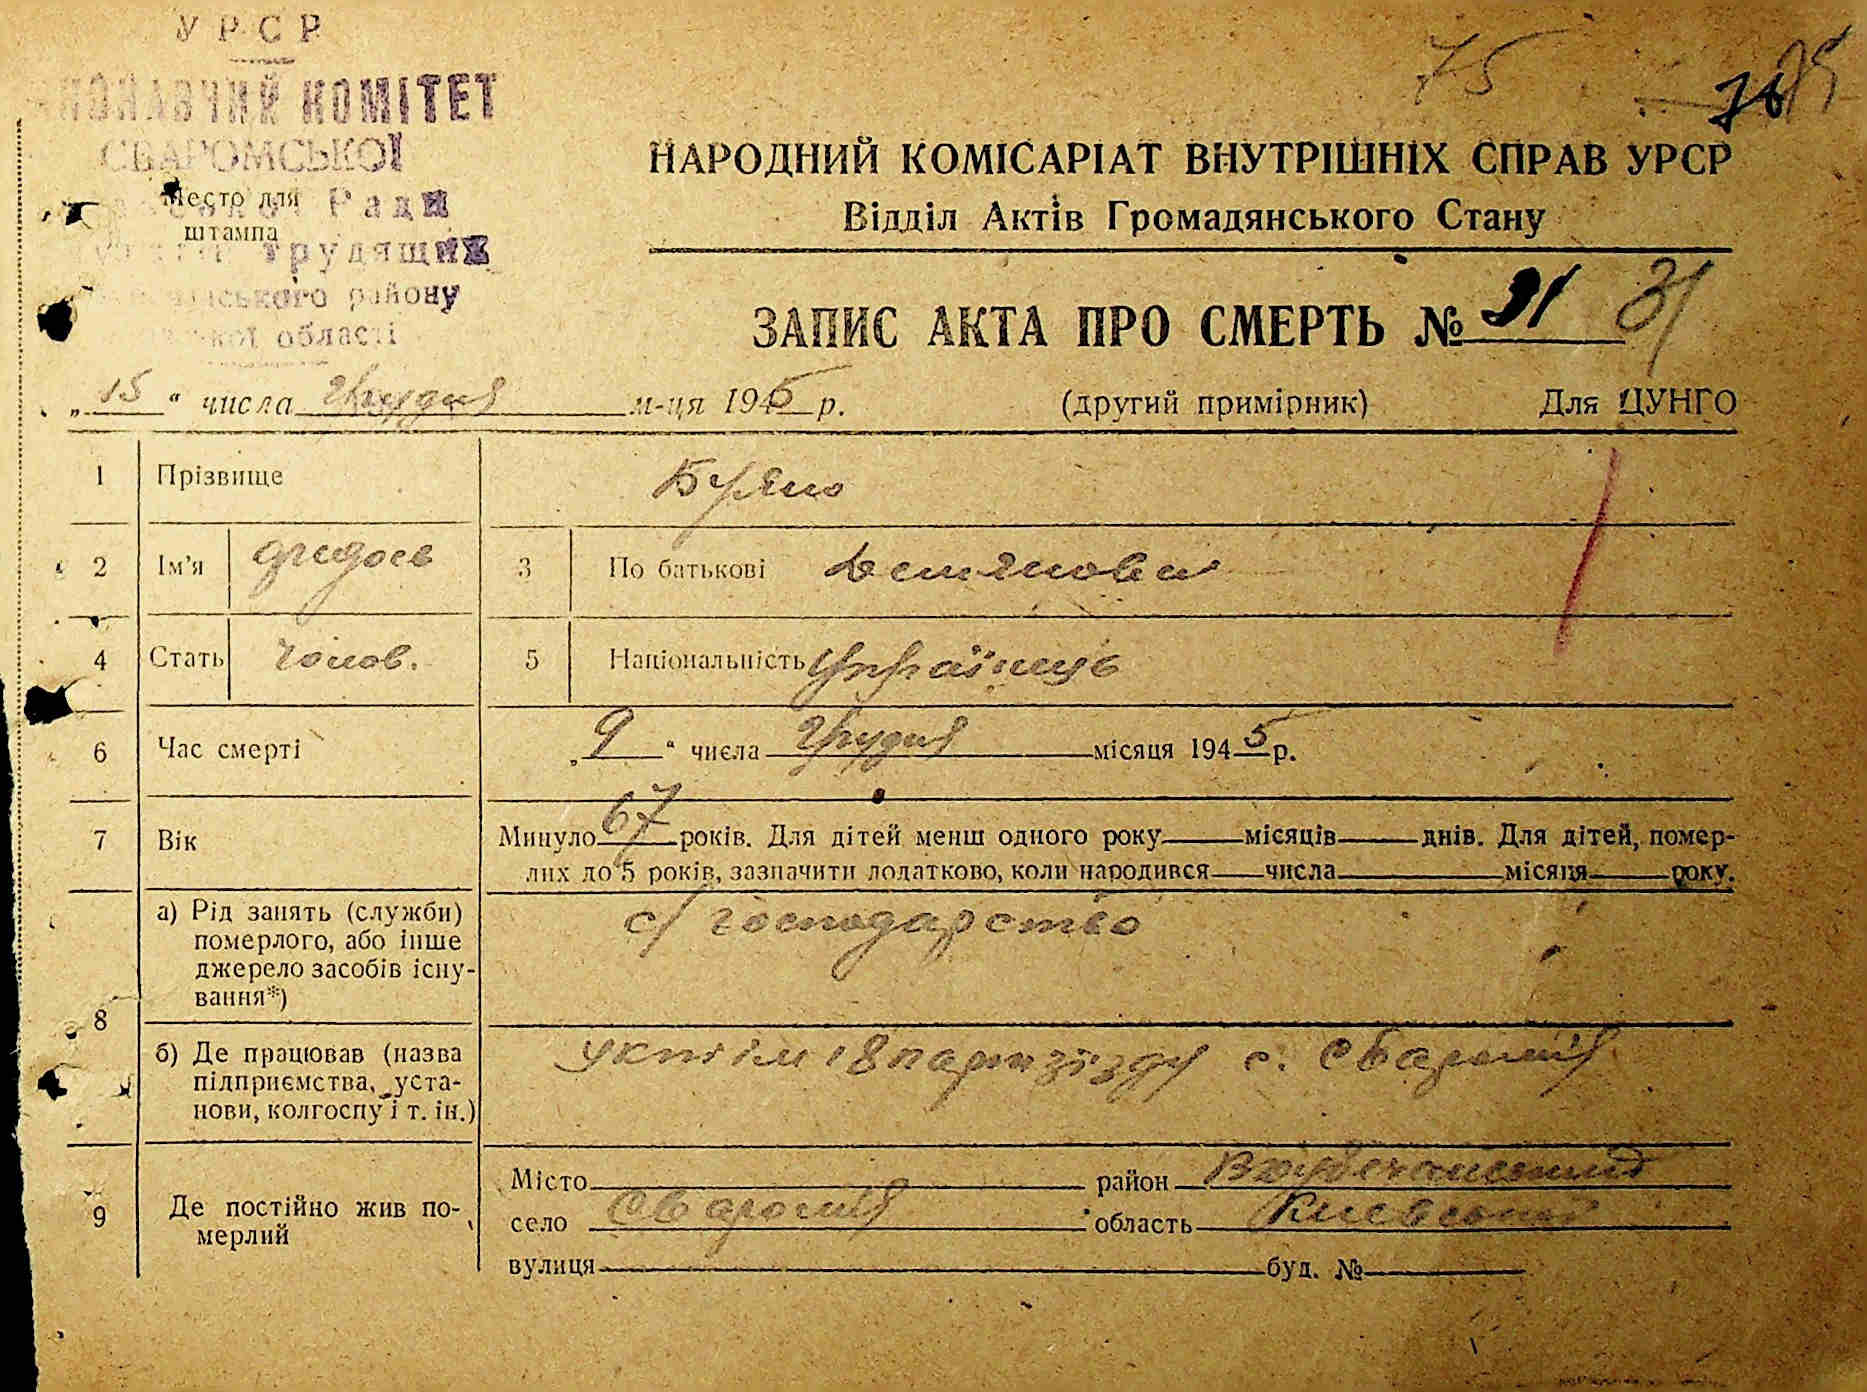 УРСР
КОМІТЕТ
СВАРОМСЬКОЇ
Место для
Ради
штампа
трудящих
району
області
75
76
НАРОДНИЙ КОМІСАРІАТ ВНУТРІШНІХ СПРАВ УРСР
Відділ Актів Громадянського Стану
ЗАПИС АКТА ПРО СМЕРТЬ № 31 31
„15“ числа Грудня м-ця 1945 р. (другий примірник) Для ЦУНГО
1 Прізвище Буяло
2 Ім'я Федось 3 По батькові Демянович
4 Стать чолов. 5 Національність Українець
6 Час смерті „9“ числа Грудня місяця 1945 р.
7 Вік Минуло 67 років. Для дітей менш одного року місяців днів. Для дітей, помер-
лих до 5 років, зазначити додатково, коли народився числа місяця року.
8 а) Рід занять (служби) померлого, або інше джерело засобів існу-вання*) с/господарство
б) Де працював (назва підприємства, уста-нови, колгоспу і т. ін.) ім 18 партзїзду с. Сваромʼя
9 Де постійно жив по-мерлий
Місто район
село Сваромʼя область Києвської
вулиця буд. №